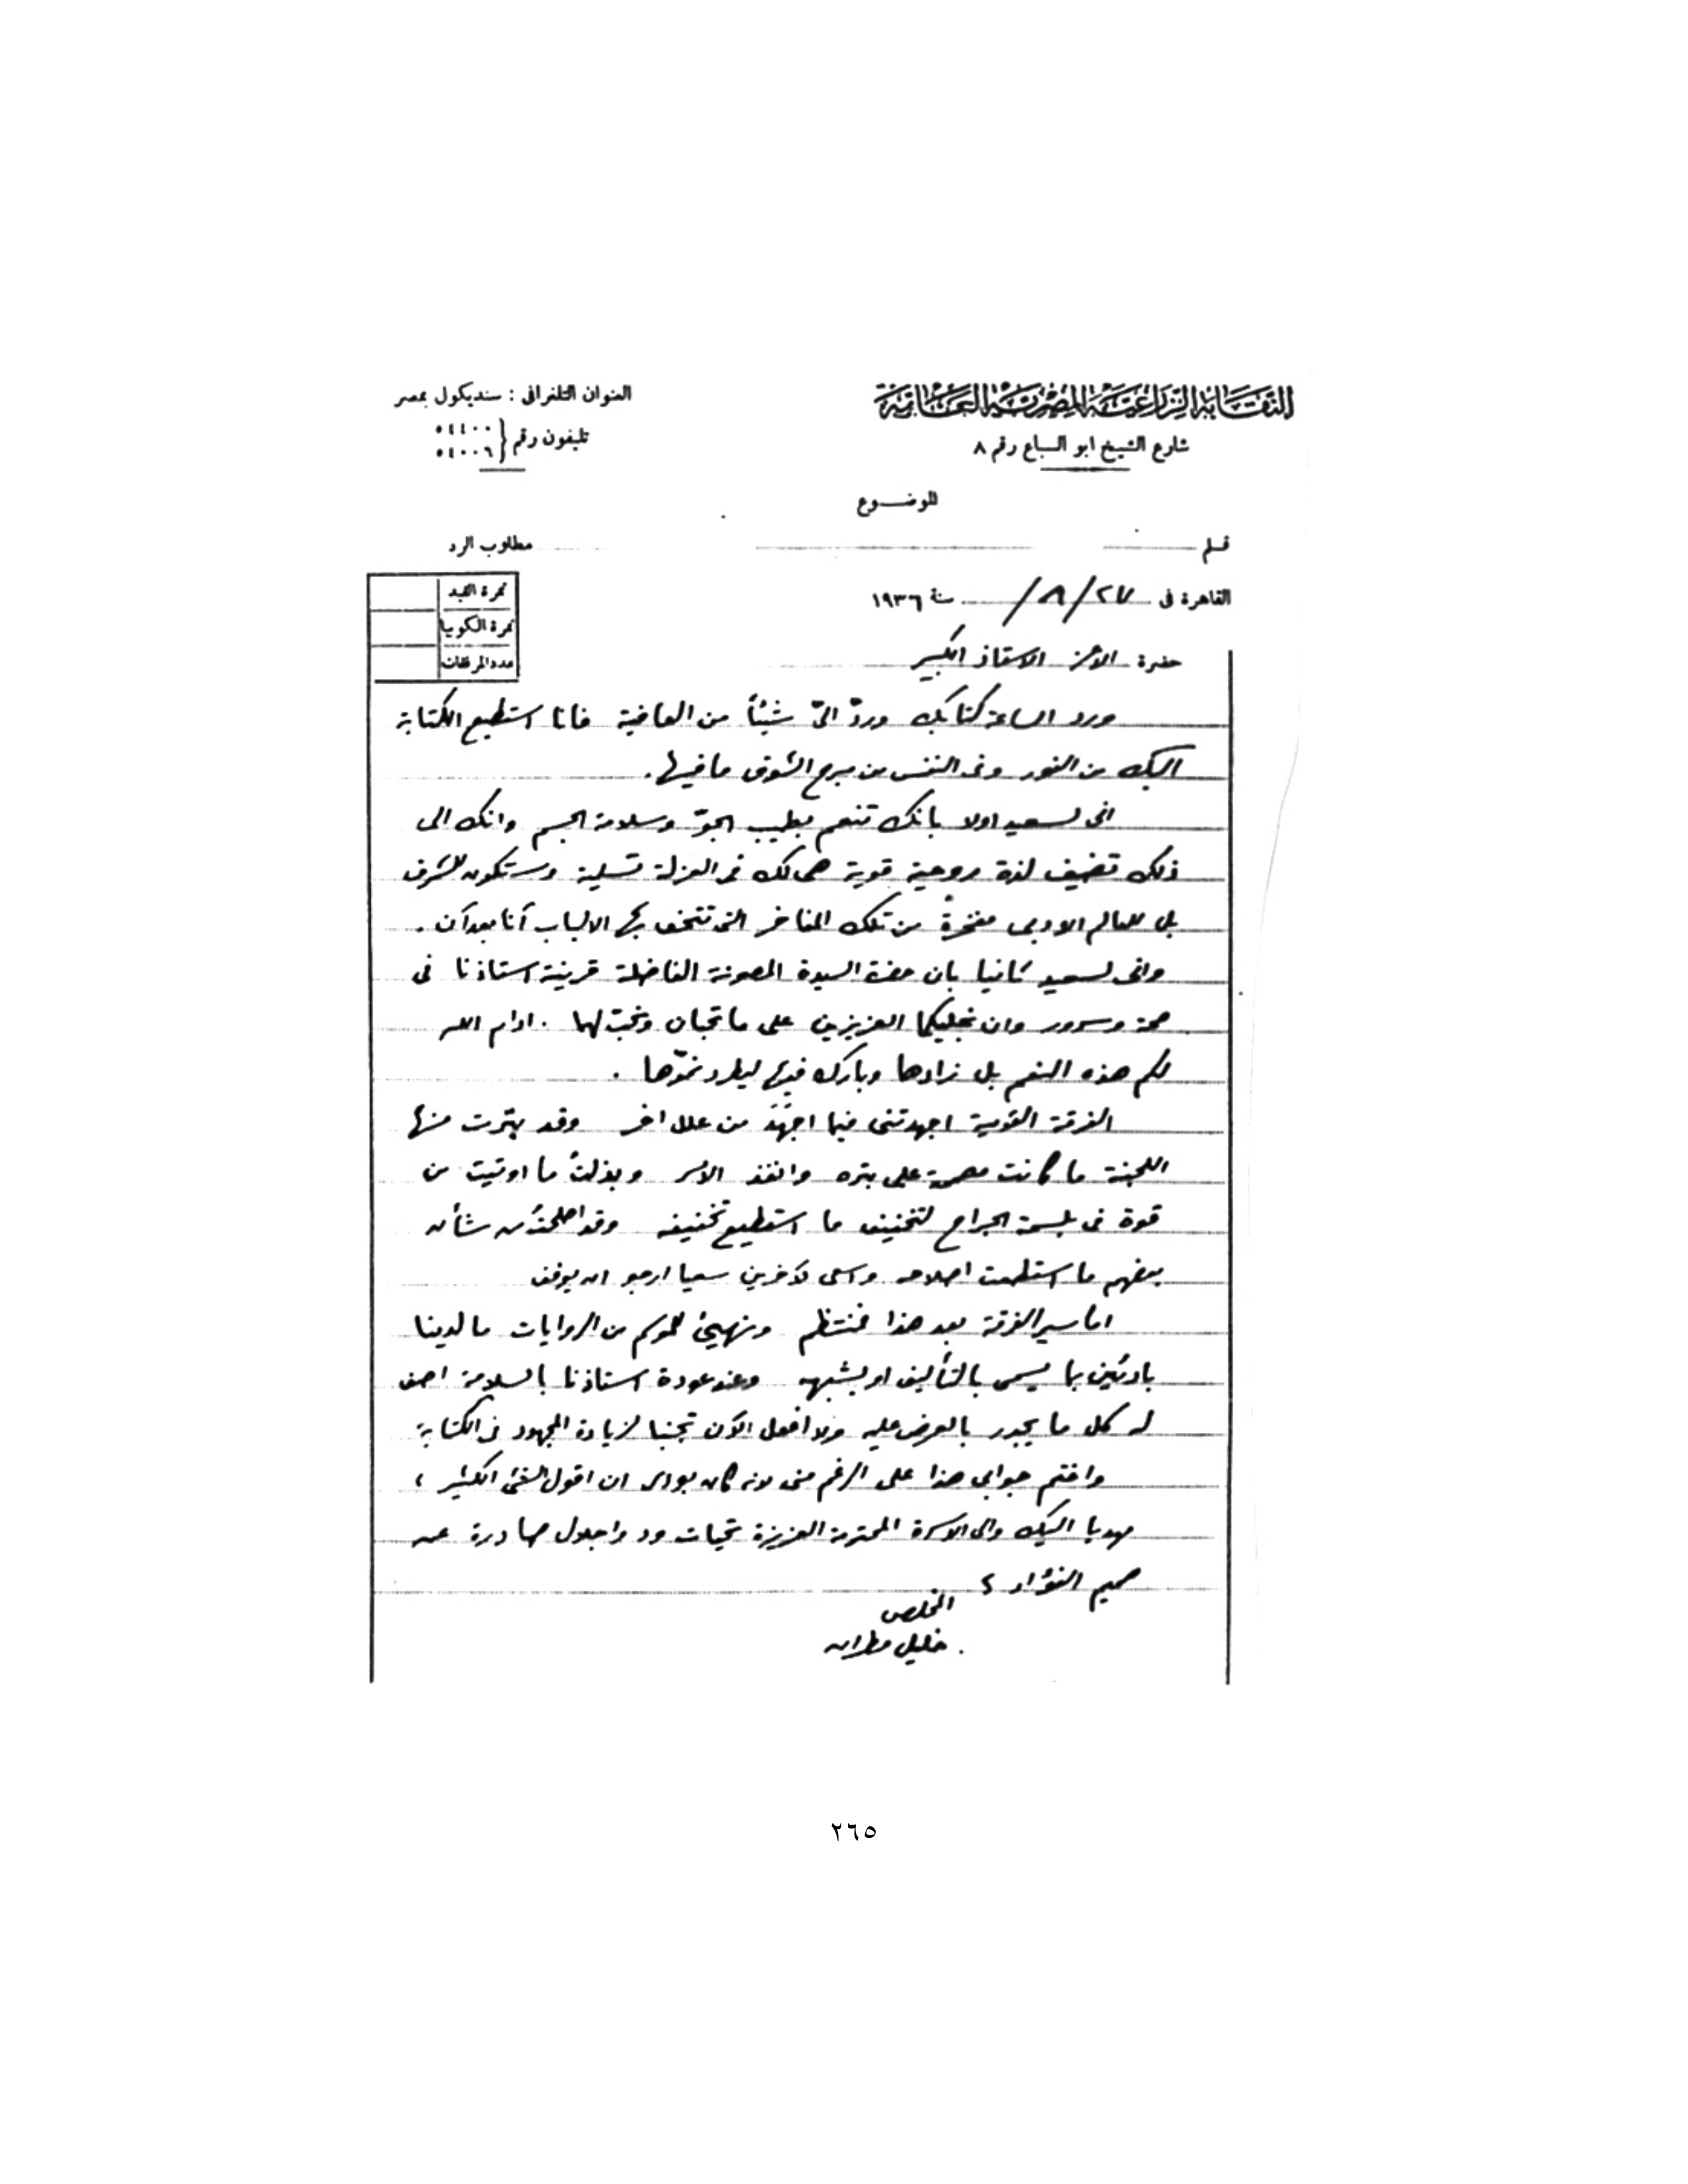 النقابة الزراعية المصرية العامة
شارع الشيخ ابو السباع رقم ٨
العنوان التلغرافى : سنديكول بمصر
تليفون رقم { ٥٤٤٠٠
٥٤٠٠٦
الموضوع
قسم
مطلوب الرد
القاهرة فى ٢٧/٨/ سنة ١٩٣٦
نمرة القيد
نمرة الكوبيا
عدد المرفقات
حضرة الأعز الاستاذ الكبير
ورد الساعة كتابك وردّ الىّ شيئاً من العافية فانا استطيع الكتابة
اليك من الفور وفى النفس من مبرح الشوق ما فيها .
انى لسعيد اولا بانك تنعم بطيب الجوّ وسلامة الجسم وانك الى
ذلك تضيف لذة روحية قوية هى لك فى العزلة تسلية وستكون للشرق
بل للعالم الادبى مفخرة من تلك المفاخر التى تتحف بها الالباب آنا بعد آن .
وانى لسعيد ثانيا بان حضرة السيدة المصونة الفاضلة قرينة استاذنا فى
صحة وسرور وان نجليكما العزيزين على ما تحبان ونحب لهما . ادام الله
لكم هذه النعم بل زادها وبارك فيها ليطرد نموّها .
الفرقة القومية اجهدتنى فيما اجهد من علل اخر وقد بترت منها
اللجنة ما كانت مصممة على بتره وانفذ الامر وبذلت ما اوتيت من
قوة فى بلسمة الجراح لتخفيف ما استطيع تخفيفه وقد اصلحت من شأن
بعضهم ما استطعت اصلاحه واسعى للآخرين سعيا ارجو ان يوفق
اما سير الفرقة بعد هذا فمنتظم ونهيئ للموسم من الروايات ما لدينا
بادئين بما يسمى بالتأليف او يشبهه وعند عودة استاذنا بالسلامة اصف
له كل ما يجدر بالعرض عليه ولا افعل الآن تجنبا لزيادة المجهود فى الكتابة
واختم جوابى هذا على الرغم منى لانه كان بودى ان اقول الشئ الكثير ،
مهديا اليك والى الاسرة المحترمة العزيزة تحيات ود واجلال صادرة عن
صميم الفؤاد
المخلص
خليل مطران
٢٦٥